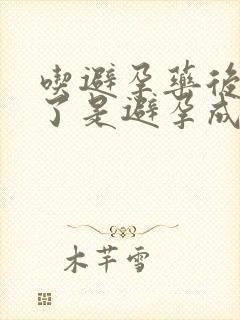 喫避孕藥後
了是避孕成
木芊雪